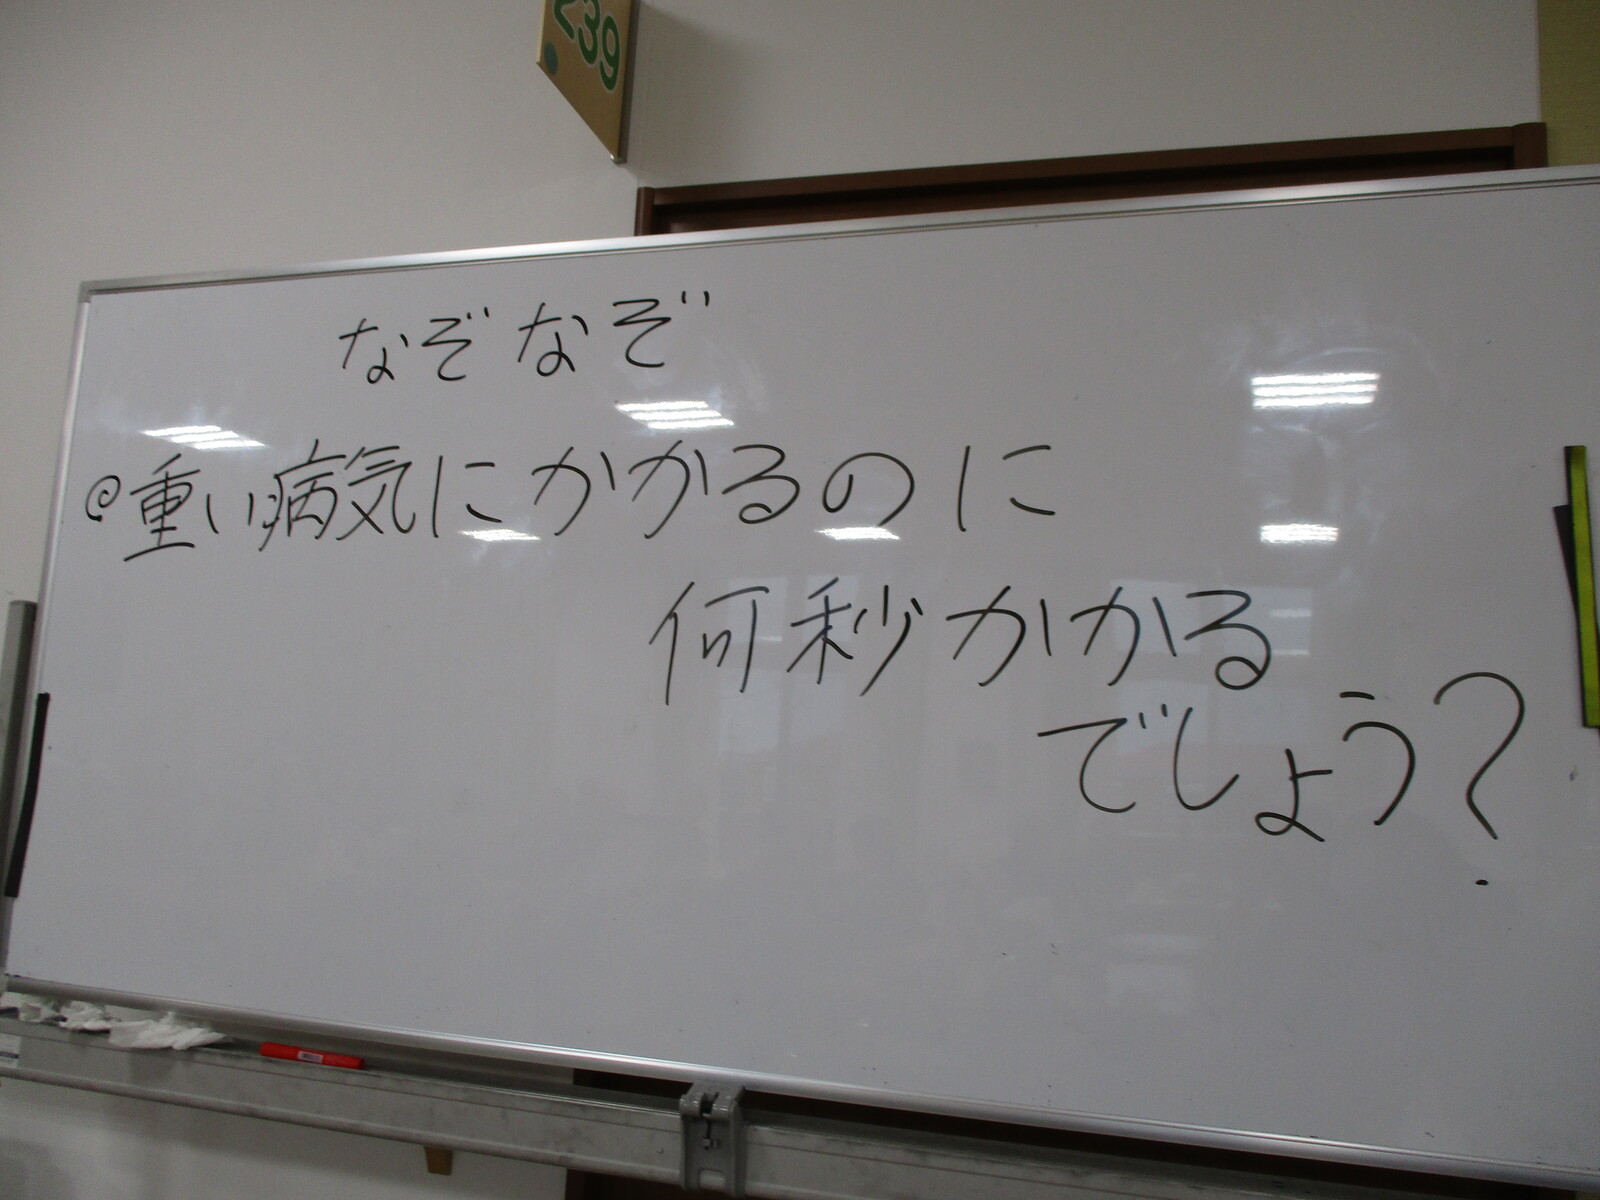 239
なぞなぞ
@重い病気にかかるのに
何秒かかる
でしょう?